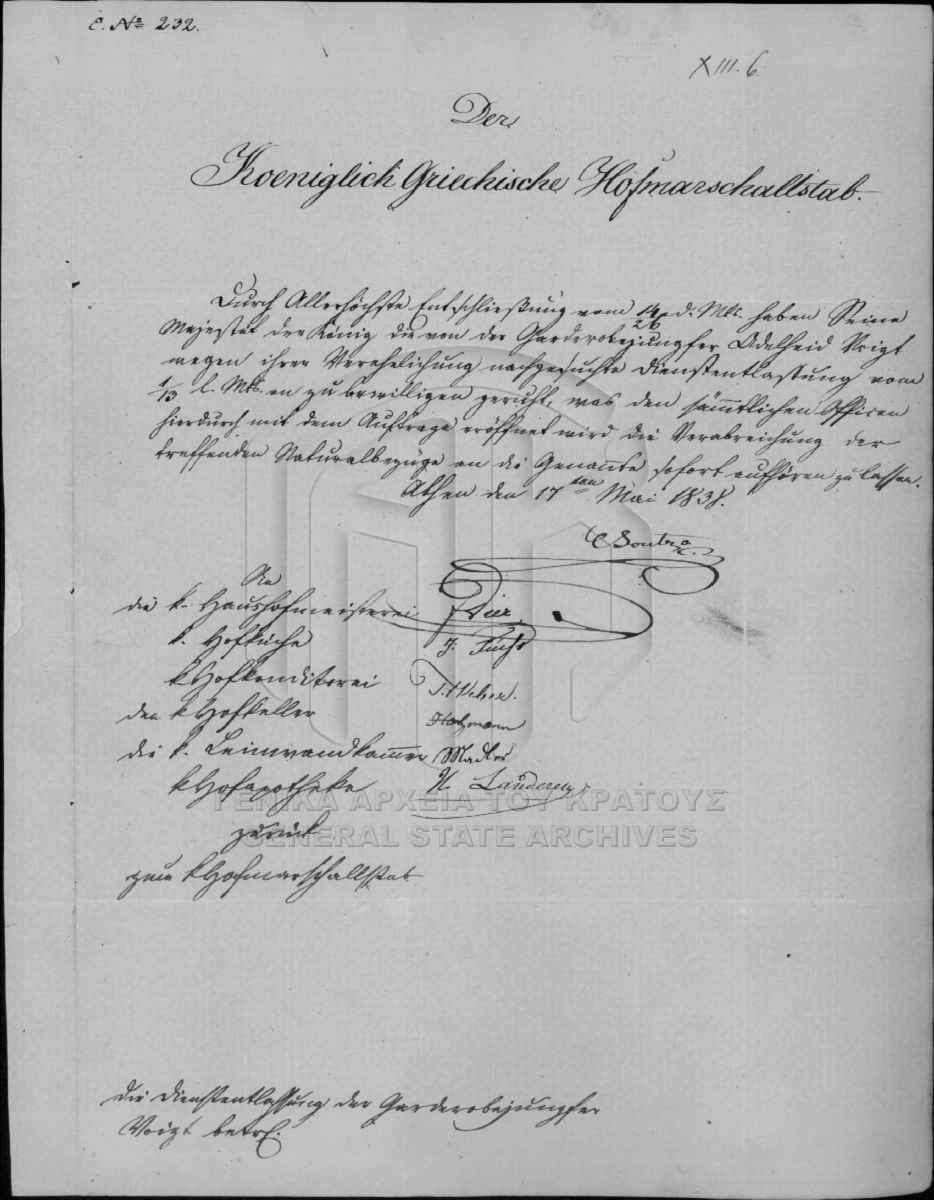 E. No 232.
XIII. 6.
Der
Koeniglich Griechische Hofmarschallstab.
Durch Allerhöchste Entschließung vom 14/26 d. Mts. haben Seine
Majestät der König die von der Garderobejungfer Adelheid Voigt
wegen ihrer Verehelichung nachgesuchte Dienstentlassung vom
1/13 l. Mts. an zu bewilligen geruht, was den sämmtlichen Officen
hierdurch mit dem Auftrage eröffnet wird die Verabreichung der
treffenden Naturalbezüge an die Genannte sofort aufhören zu lassen.
Athen den 17ten Mai 1838.
An
die k. Haushofmeisterei
k. Hofküche J. Fuchs
k Hofkonditorei
den k Hofkeller
die k. Leinwandkammer
k Hofapotheke Landerer
zurück
zum k Hofmarschallstab
ΓΕΝΙΚΑ ΑΡΧΕΙΑ ΤΟΥ ΚΡΑΤΟΥΣ
GENERAL STATE ARCHIVES
Die Dienstentlassung der Garderobejungfer
Voigt betr.